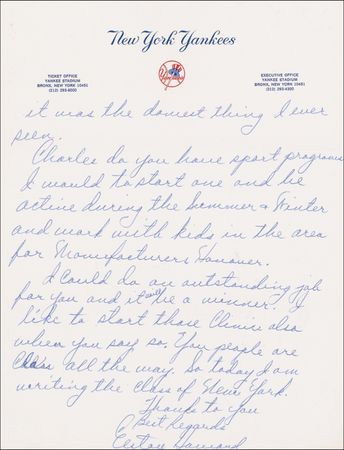 New York Yankees
TICKET OFFICE
YANKEE STADIUM
BRONX, NEW YORK 10451
(212) 293-6000
EXECUTIVE OFFICE
YANKEE STADIUM
BRONX, NEW YORK 10451
(212) 293-4300
it was the domest thing I ever
seen.
Charles do you have sport programs
I would to start one and be
active during the Summer & Winter
and work with kids in the area
for Manufacturers Hanover.
I could do an outstanding job
for you and it will be a winner. I
like to start those Clinic also
when you say so. You people are
Class all the way. So today I am
writing the class of New York.
Thanks to you
Best Regards
Elston Howard